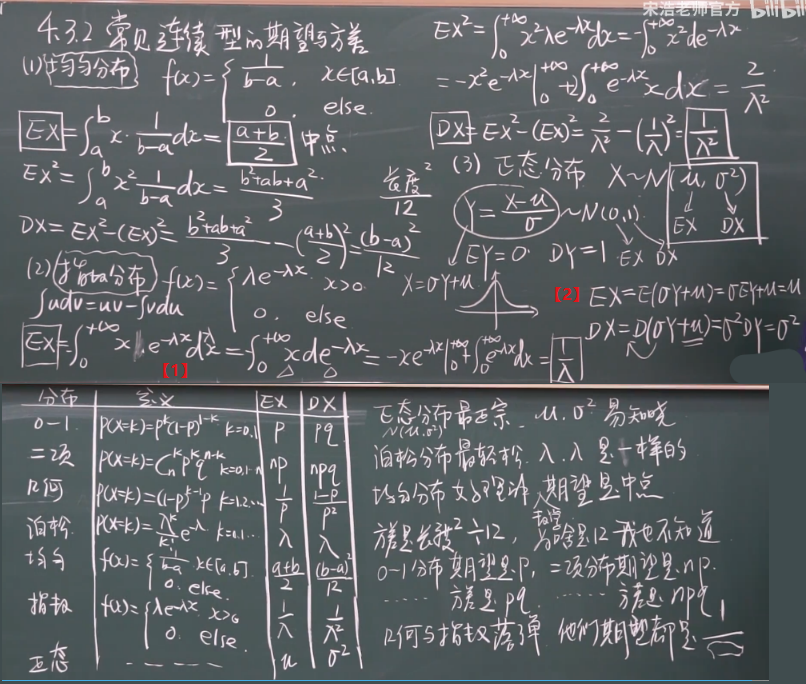 宋浩老师官方 bilibili
4.3.2 常见连续型的期望与方差
(1) 均匀分布 f(x)={ 1/(b-a), x∈[a,b]
0, else.
EX=∫_a^b x·1/(b-a)dx=(a+b)/2 中点
EX²=∫_a^b x² 1/(b-a)dx=(b²+ab+a²)/3 长度²/12
DX=EX²-(EX)²=(b²+ab+a²)/3-((a+b)/2)²=(b-a)²/12
(2) 指数分布 f(x)={ λe^{-λx}. x>0.
0. else
∫udv=uv-∫vdu
EX=∫_0^{+∞} x e^{-λx}dλx=-∫_0^{+∞} xde^{-λx}=-xe^{-λx}|_0^{+∞}+∫_0^{+∞}e^{-λx}dx=1/λ
【1】
EX²=∫_0^{+∞}x²λe^{-λx}dx=-∫_0^{+∞}x²de^{-λx}
=-x²e^{-λx}|_0^{+∞}+2∫_0^{+∞}e^{-λx}xdx=2/λ²
DX=EX²-(EX)²=2/λ²-(1/λ)²=1/λ²
(3) 正态分布 X~N(μ,σ²)
EX DX
Y=(X-μ)/σ~N(0,1)
EX DX
EY=0 DY=1
X=σY+μ
【2】 EX=E(σY+μ)=σEY+μ=μ
DX=D(σY+μ)=σ²DY=σ²
分布 定义 EX DX
0-1 P(X=k)=p^k(1-p)^{1-k} k=0,1 p pq
二项 P(X=k)=C_n^k p^k q^{n-k} k=0,1…n np npq
几何 P(X=k)=(1-p)^{k-1}p k=1,2… 1/p (1-p)/p²
泊松 P(X=k)=λ^k/k! e^{-λ} k=0,1… λ λ
均匀 f(x)={ 1/(b-a) x∈[a,b]. (a+b)/2 (b-a)²/12
0. else.
指数 f(x)={ λe^{-λx} x>0 1/λ 1/λ²
0. else.
正态 ------ μ σ²
正态分布最正宗. μ.σ² 易知晓
N(μ,σ²)
泊松分布最轻松. λ.λ是一样的
均匀分布 期望是中点
方差是长度²÷12, 为啥是12 我也不知道
0-1分布期望是p, 二项分布期望是np.
…… 方差是pq, …… 方差是npq
几何与指数 他们期望都是 1/